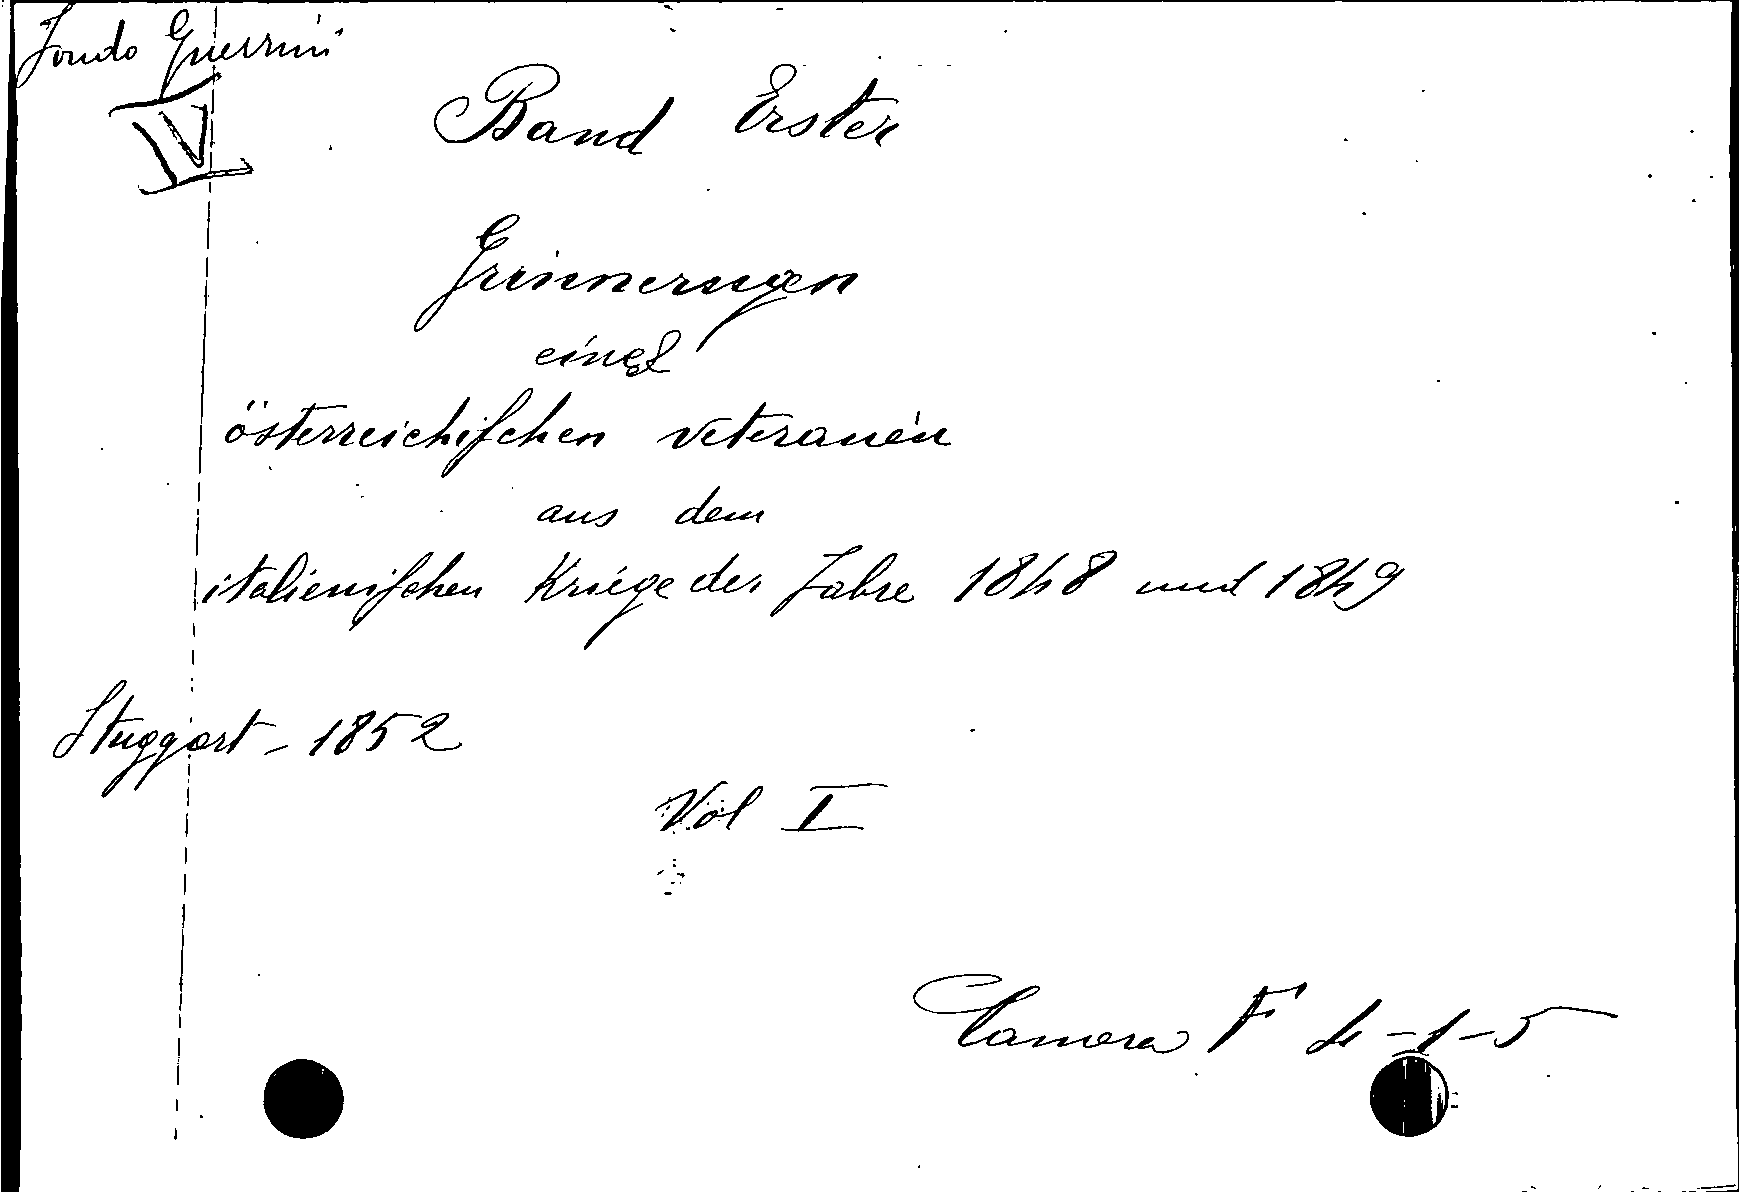 Fondo Guerrini
IV
Band Erster
Erinnerungen
eines
österreichischen veteranen
aus dem
italienischen Kriege der Jahre 1848 und 1849
Stuggart - 1852
Vol I
Camera F 4-1-5